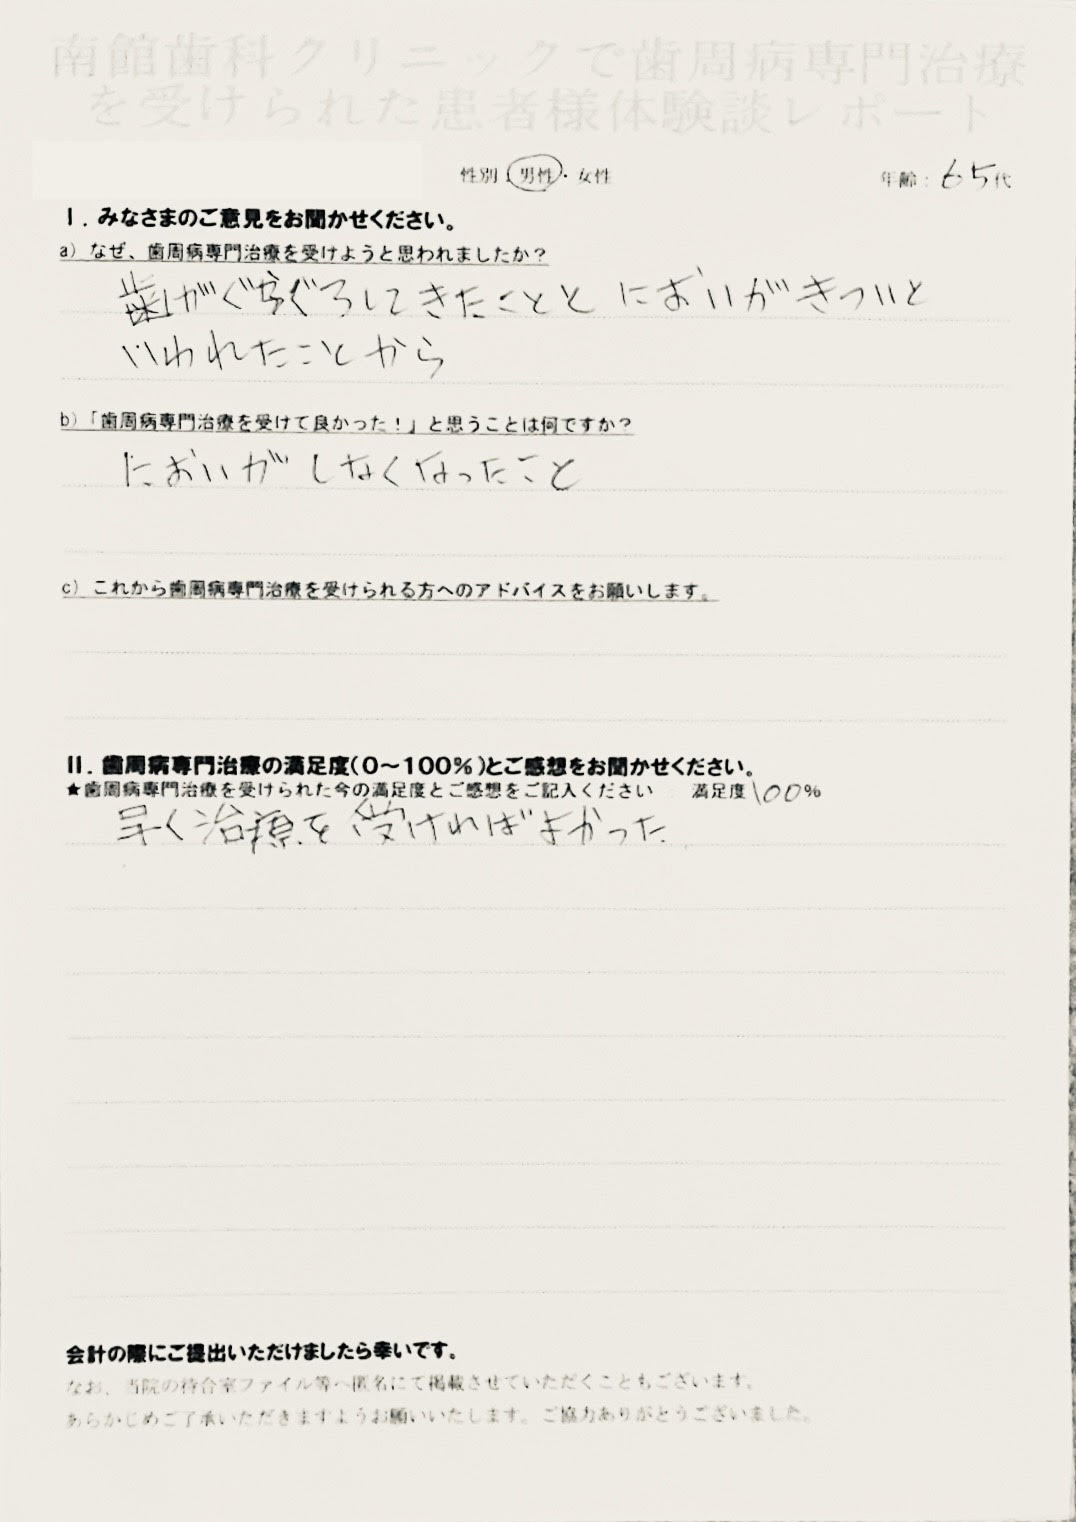 南館歯科クリニックで歯周病専門治療
を受けられた患者様体験談レポート
性別：男性・女性
年齢：65代
Ⅰ．みなさまのご意見をお聞かせください。
a）なぜ、歯周病専門治療を受けようと思われましたか？
歯がぐらぐらしてきたことと においがきついと
いわれたことから
b）「歯周病専門治療を受けて良かった！」と思うことは何ですか？
においがしなくなったこと
c）これから歯周病専門治療を受けられる方へのアドバイスをお願いします。
Ⅱ．歯周病専門治療の満足度（0～100％）とご感想をお聞かせください。
★歯周病専門治療を受けられた今の満足度とご感想をご記入ください 満足度100％
早く治療を受ければよかった
会計の際にご提出いただけましたら幸いです。
なお、当院の待合室ファイル等へ匿名にて掲載させていただくこともございます。
あらかじめご了承いただきますようお願いいたします。ご協力ありがとうございました。